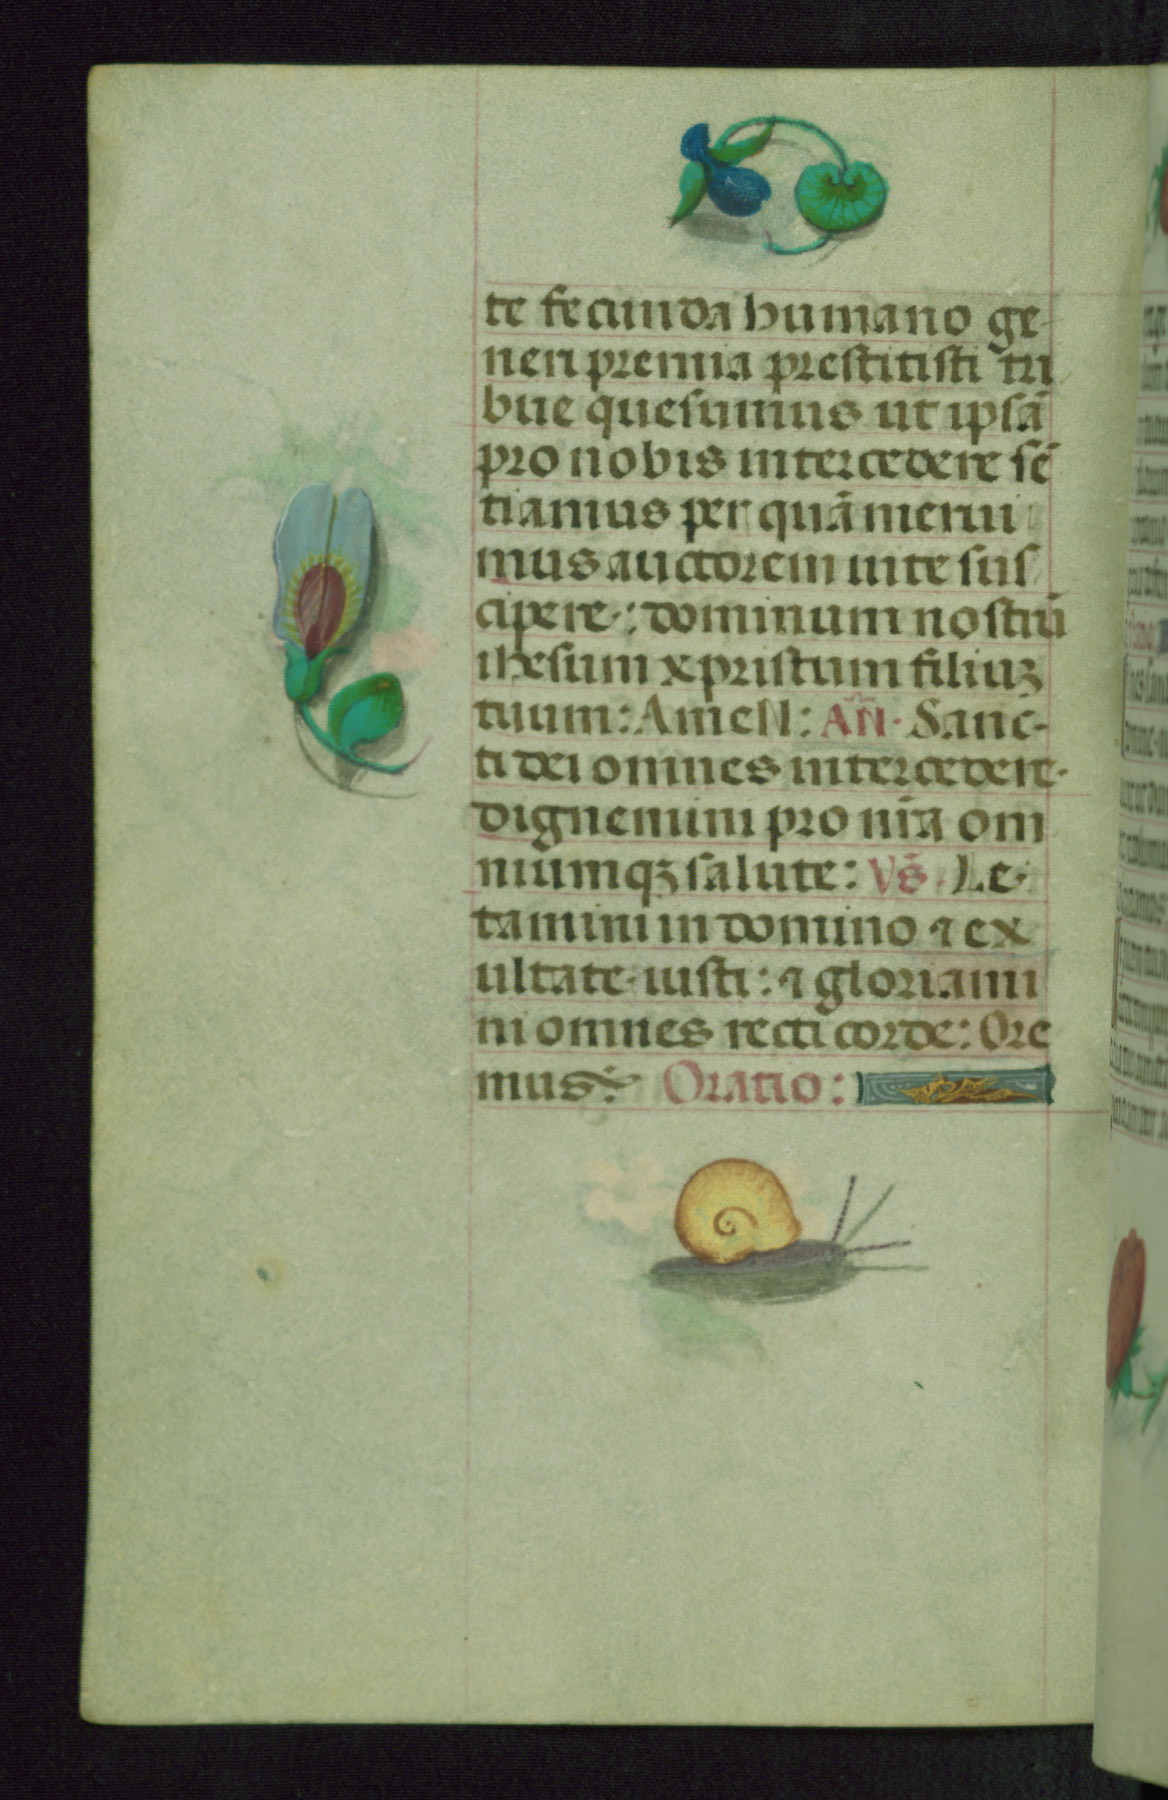 te fecunda humano ge-
neri premia prestitisti tri
bue quesumus ut ipsā
pro nobis intercedere sē
tiamus per quā merui
mus auctorem uite sus
cipere: dominum nostrū
ihesum xpristum filiuꝫ
tuum: Amen: Añ. Sanc-
ti dei omnes intercedere.
dignemini pro nr̄a om
niumqꝫ salute: Vs̄. Le-
tamini in domino ⁊ ex
ultate iusti: ⁊ gloriami
ni omnes recti corde: Ore
mus: Oratio: